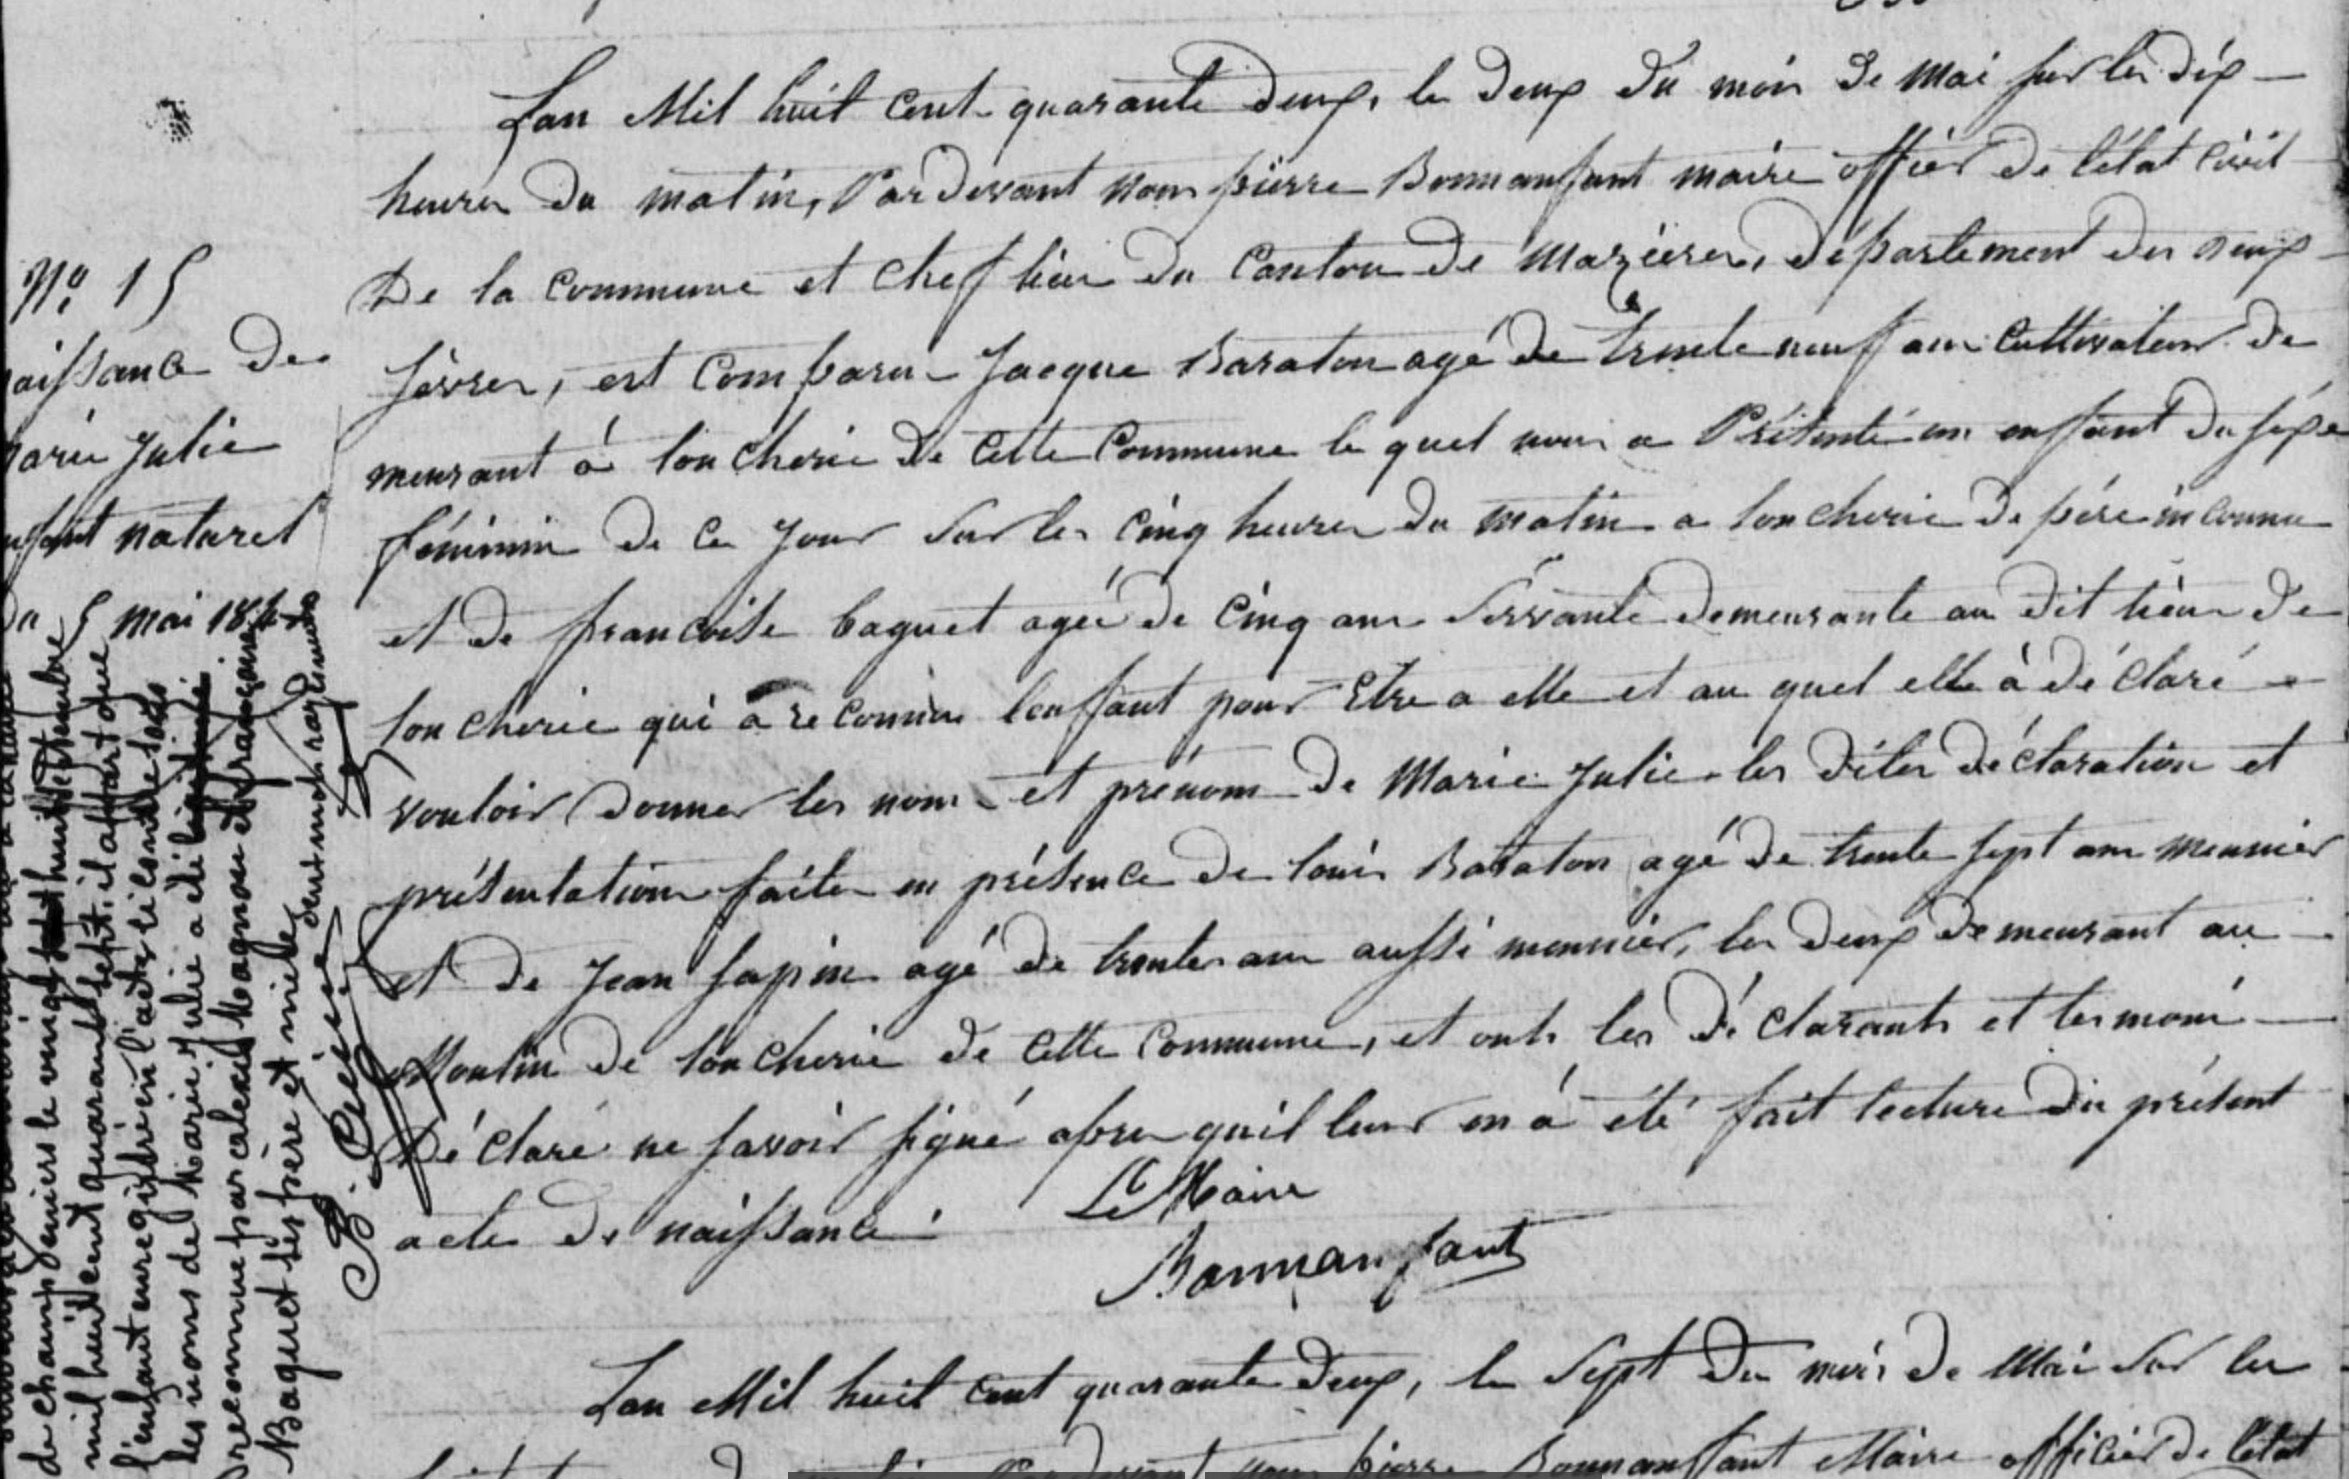 Nº 15
aissance de
arie Julie
nfant naturel
du 5 mai 1842
de champdeniers le vingt huit septembre
mil huit cent quarante sept, il appart que
l'enfant enregistré en l'acte ci contre sous
les noms de Marie Julie a été légitimé
reconnue par caleau Magnou et françoise
Baquet ses père et mère
deux mots rayés nuls
Lan Mil huit cent quarante deux, le deux du mois de mai sur les dix
heures du matin, Pardevant nous pierre Bonnanfant maire offier de l'état civil
De la commune et chef lieu du Canton de Mazieres, département des deux
sèvres, est comparu Jacque Baraton agé de trente neuf ans Cultivateur de
meurant à loucherie de cette Commune le quel nous a Présenté un enffant du séxe
féminin de ce jour sur les cinq heures du matin a loucherie de père inconnu
et de francoise baquet agée de cinq ans servante demeurante au dit lieu de
loucherie qui a reconnu lenffant pour Etre a elle et au quel elle à déclaré
vouloir donner les nom et prénom de Marie Julie les dites déclaration et
présentation faites en présence de louis Baraton agé de trente sept ans meunier
et de Jean sapin agé de trente ans aussi meunier, les deux demeurant au
Moulin de loucherie de cette Commune, et onts les déclarants et temoni
Déclaré ne savoir signé apres quil leur en à été fait lecture du présent
acte de naissance.
Le Maire
Bonnanfant
Lan Mil huit cent quarante deux, le sept du mois de Mai sur les
pierre Bonnanfant Maire officier de l'état